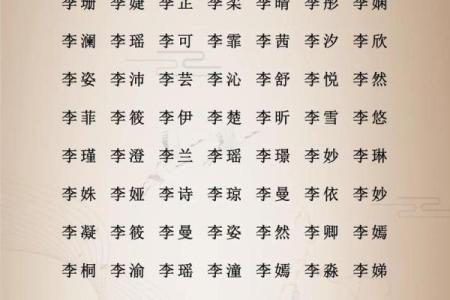 李珊 李婕 李芷 李柔 李晴 李彤 李娴
李澜 李瑶 李可 李霏 李茜 李汐 李欣
李姿 李沛 李芸 李沁 李舒 李悦 李然
李菲 李筱 李伊 李楚 李昕 李雪 李悠
李瑾 李澄 李兰 李瑶 李璟 李妙 李琳
李姝 李娅 李诗 李琼 李曼 李依 李妙
李凝 李筱 李曼 李姿 李然 李卿 李嫣
李桐 李渝 李瑶 李潼 李嫣 李淼 李娣